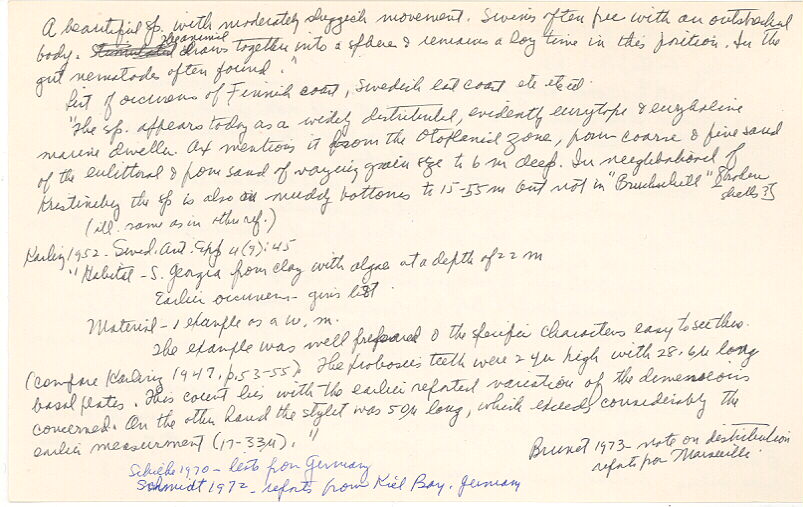 A beautiful sp. with moderately sluggish movement. Swims often free with an outstretched
body. Stimulated the animal draws together into a sphere & remains a long time in this position. In the
gut nematodes often found."
List of occurens of Finnish coast, Swedish east coast etc etc
"The sp. appears today as a widely distributed, evidently eurytope & euryhaline
marine dweller. Ax mentions it from the Otoplanid zone, from coarse & fine sand
of the eulittoral & from sand of varying grain size to 6 m deep. In neighborhood of
Kristineberg the sp is also on muddy bottoms to 15-55 m but not in "Bruchschill" [broken
shells?]
(ill. same as in other ref.)
Karling 1952 - Swed. Ant. Exp 4(9):45
"Habitat - S. Georgia from clay with algae at a depth of 22 m
Earlier occurens - gives list
Material - 1 example as a w. m.
The example was well prepared & the specific characters easy to see thru.
(compare Karling 1947, p. 53-55). The proboscis teeth were 24µ high with 28.6µ long
basal plates. This count lies with the earlier reported variation of the dimensions
concerned. On the other hand the stylet was 50µ long, which exceeds considerably the
earlier measurment (17-33µ)."
Brunet 1973 - note on distribution
reports from Marseille.
Schilke 1970 - lists from Germany
Schmidt 1972 - reports from Kiel Bay, Germany